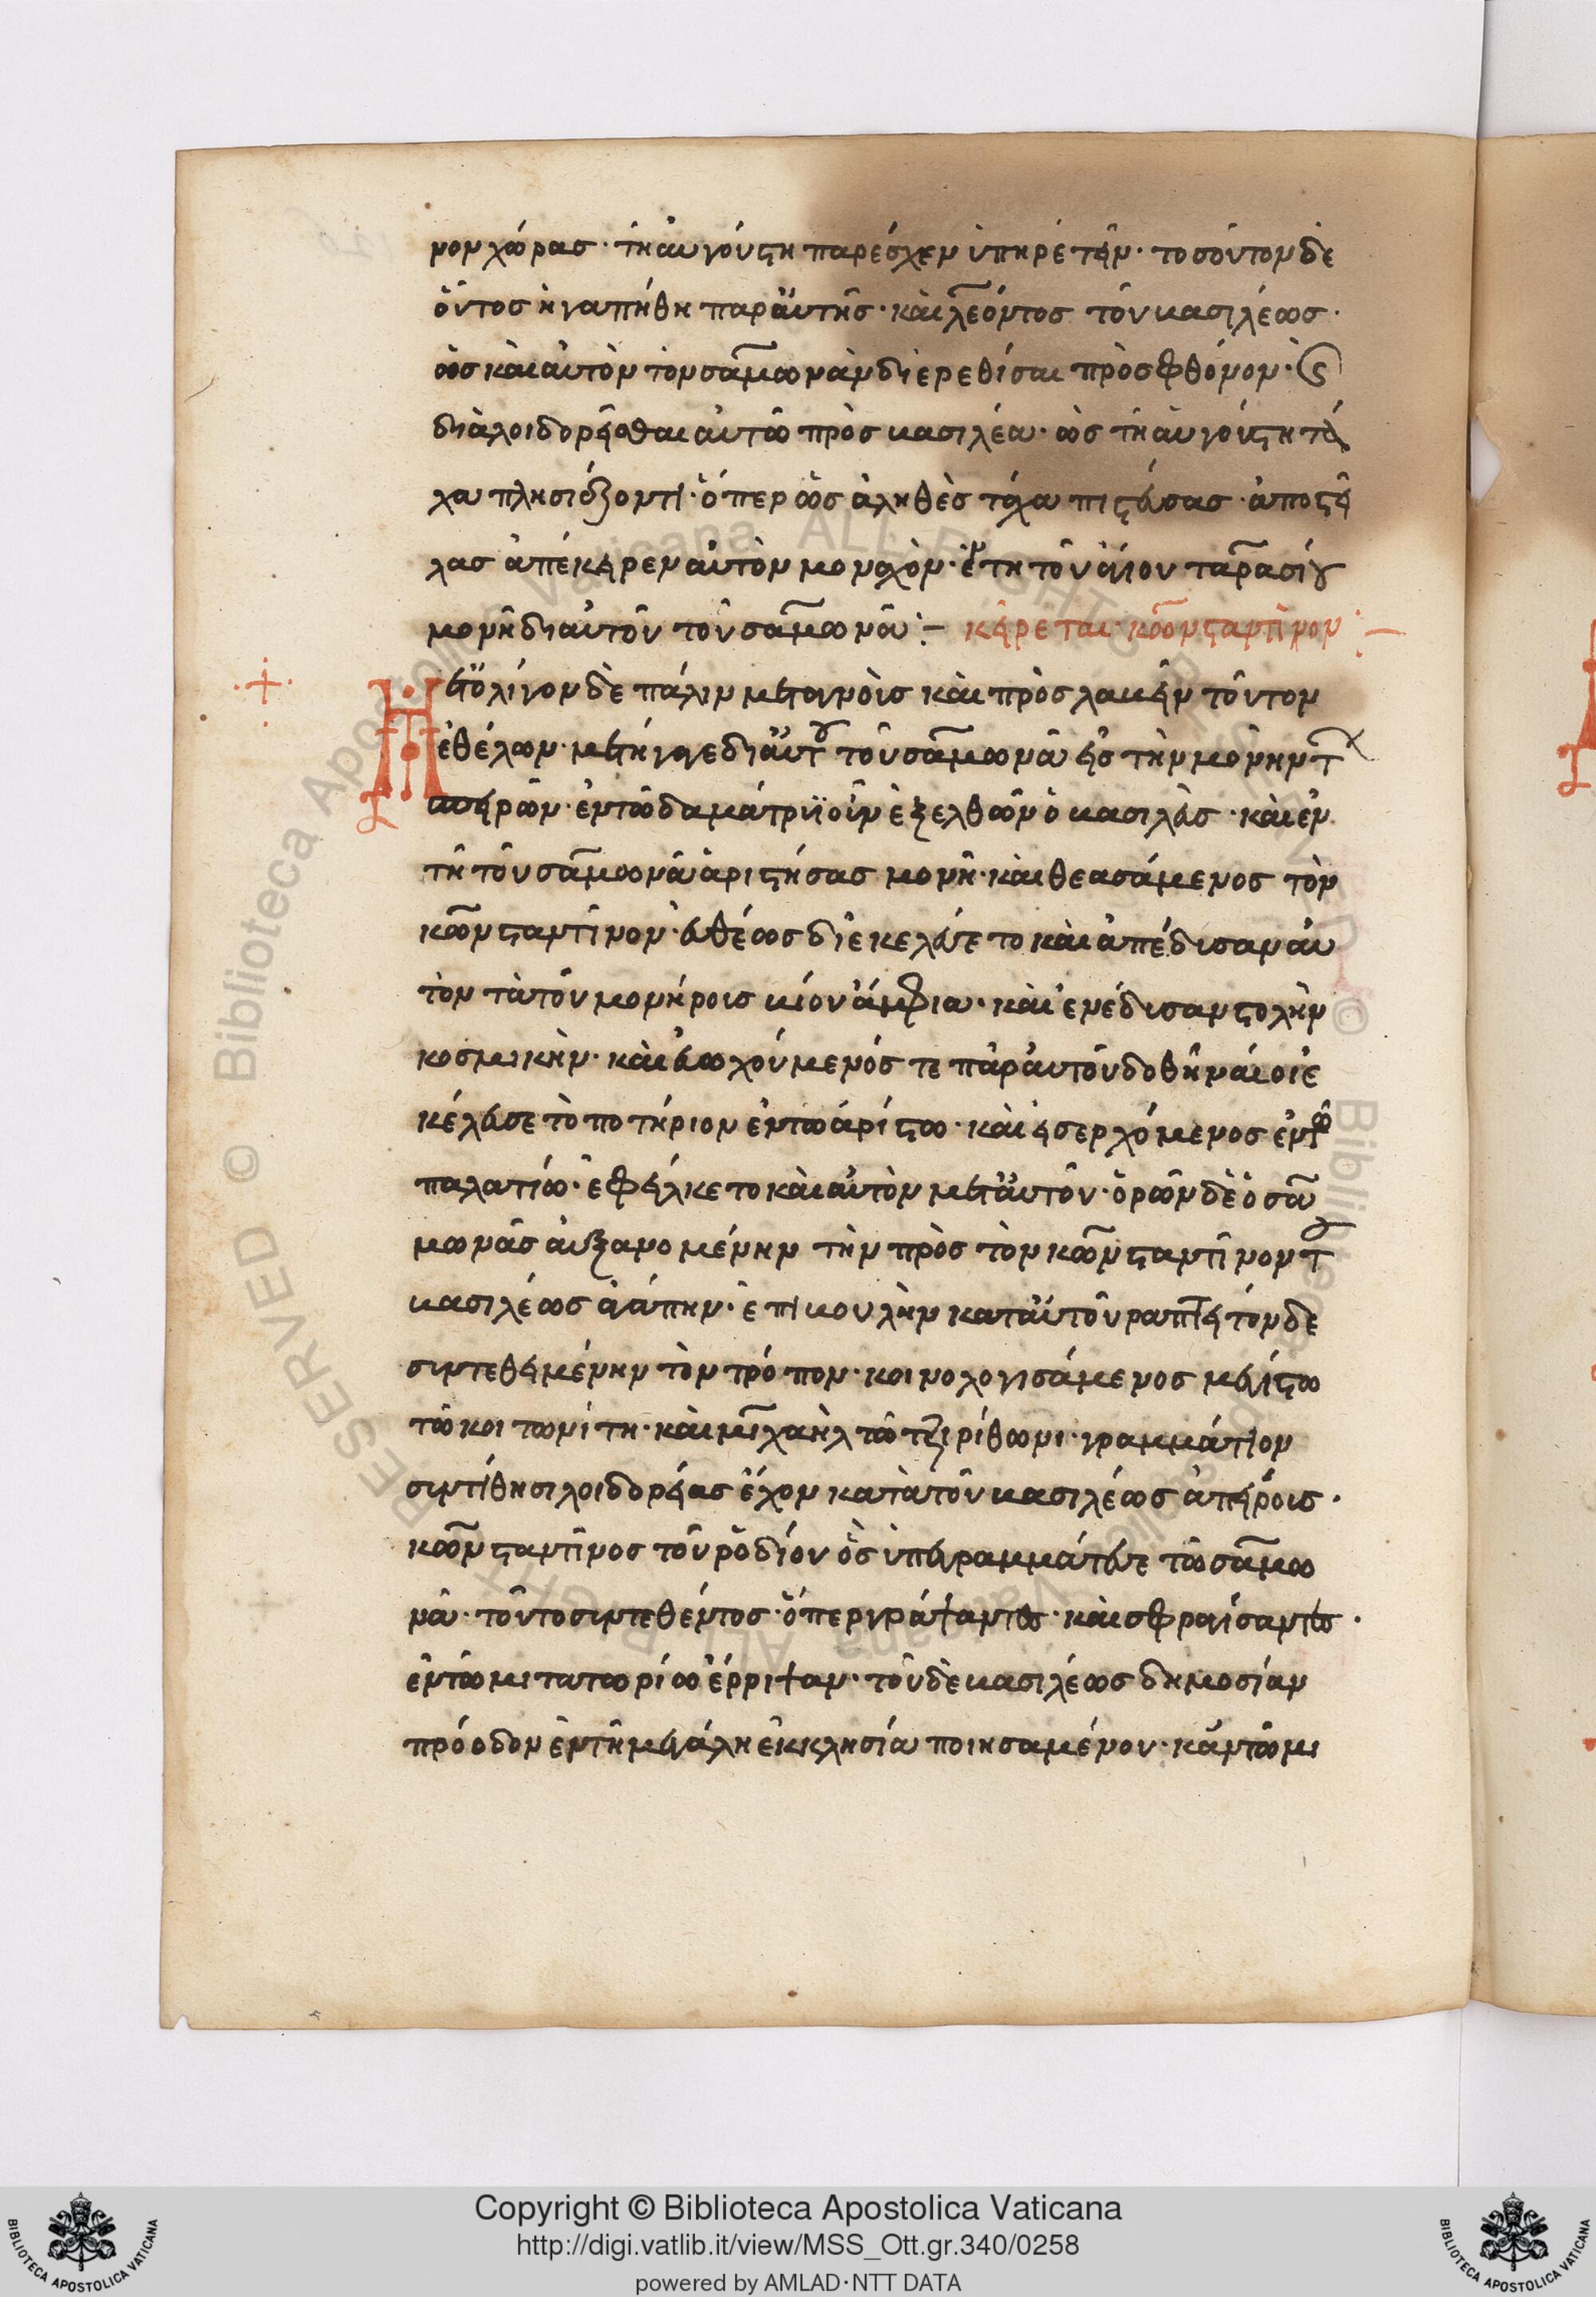 νον χώρας· τῆ αυγούστη παρέσχεν ὑπηρέτειν· τοσοῦτον δὲ
οὗτος ἠγαπήθη παρ' αὐτῆς· καὶ λέοντος τοῦ βασιλέως·
ὡς καὶ αὐτὸν τὸν σαμωνὰν διερεθίσαι πρὸς φθόνον· ς
διαλοιδορεῖσθαι αὐτῶ πρὸς βασιλέα· ὡς τῆ αὐγούστη τά
χα πλησιάζοντι· ὅπερ ὡς ἀληθὲς τάχα πιστεύσας· ἀποστεί
λας ἀπέκειρεν αὐτὸν μοναχόν· ἐν τῆ τοῦ ἁγίου ταρασίου
μονῆ δι αὐτοῦ τοῦ σαμωνᾶ :— κείρεται κωνσταντῖνον
Μετ ὀλίγον δὲ πάλιν μεταγνοὺς καὶ προσλαβεῖν τοῦτον
ἐθέλων· μετήγαγε δι αὐτοῦ τοῦ σαμωνᾶ εἰς τὴν μονὴν τ
πειρῶν· ἐν τῶ δαματρὺϊ οὖν ἐξελθὼν ὁ βασιλεὺς· καὶ ἐν
τῆ τοῦ σαμωνᾶ ἀριστήσας μονῆ· καὶ θεασάμενος τὸν
κωνσταντῖνον· εὐθέως διεκελεύετο καὶ ἀπέδυσαν αὐ
τὸν τὰ τοῦ μονήρους βίου ἄμφια· καὶ ἐνέδυσαν στολὴν
κοσμικὴν· καὶ εὐωχούμενός τε παρ αὐτοῦ δοθῆναί οἱ ἐ
κέλευσε τὸ ποτήριον ἐν τῶ ἀρίστω· καὶ εἰσερχόμενος ἐν τῶ
παλατίω· ἐφείλκετο καὶ αὐτὸν μετ αὐτοῦ· ὁρῶν δὲ ὁ σα
μωνᾶς αὐξανομένην τὴν πρὸς τὸν κωνσταντῖνον τ
βασιλέως ἀγάπην· ἐπιβουλὴν κατ αὐτοῦ ραπτει τόνδε
συντεθειμένην τὸν τρόπον· κοινολογισάμενος μεγίστω
τῶ κοιτωνίτη· καὶ μιχαὴλ τῶ τζιρίθωνι· γραμμάτιον
συντίθησι λοιδορείας ἔχον κατὰ τοῦ βασιλέως ἀπείροις·
κωνσταντῖνος τοῦ ῥοδίου ὃς ὑπεγραμμάτευε τῶ σαμω
νᾶ· τοῦτο συντεθέντος· ὅπερ γράψαντες· καὶ σφραγίσαντες·
ἐν τῶ μιτατωρίω ἔρριψαν· τοῦ δὲ βασιλέως δημοσίαν
πρόοδον ἐν τῆ μεγάλη ἐκκλησία ποιησαμένου· κἀν τῶ μι
Copyright © Biblioteca Apostolica Vaticana
http://digi.vatlib.it/view/MSS_Ott.gr.340/0258
powered by AMLAD·NTT DATA